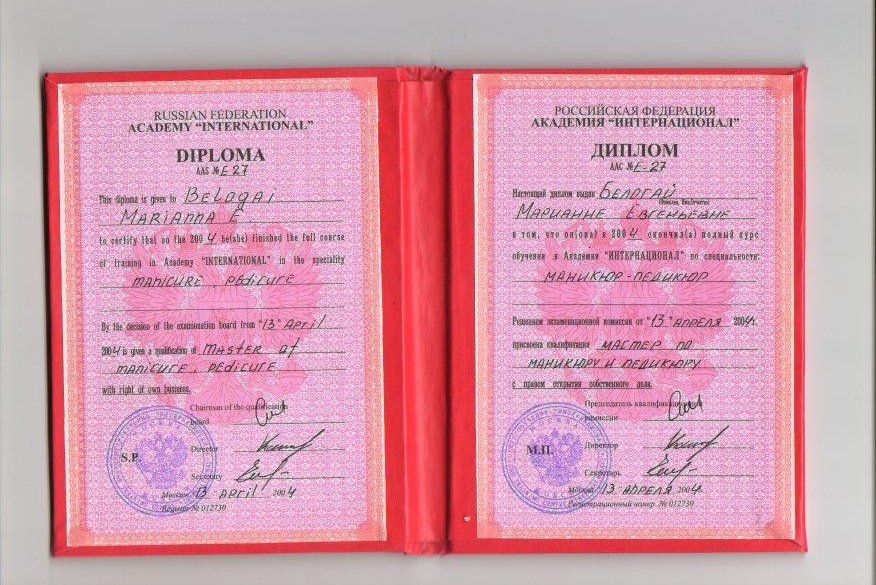 RUSSIAN FEDERATION
ACADEMY “INTERNATIONAL”
DIPLOMA
AAS № E 27
This diploma is given to Belogai
Marianna E
to certify that on the 2004 he(she) finished the full course
of training in Academy “INTERNATIONAL” in the speciality
manicure, pedicure
By the decision of the examination board from “13” April
2004 is given a qualification of master of
manicure, pedicure
with right of own business.
Chairman of the qualification
board
Director
S.P.
Secretary
Москва 13 April 2004
Register № 012730
РОССИЙСКАЯ ФЕДЕРАЦИЯ
АКАДЕМИЯ “ИНТЕРНАЦИОНАЛ”
ДИПЛОМ
ААС № Е-27
Настоящий диплом выдан Белогай
(Фамилия, Имя, Отчество)
Марианне Евгеньевне
в том, что он(она) в 2004 окончил(а) полный курс
обучения в Академии “ИНТЕРНАЦИОНАЛ” по специальности:
маникюр-педикюр
Решением экзаменационной комиссии от “13” апреля 2004г.
присвоена квалификация мастер по
маникюру и педикюру
с правом открытия собственного дела.
Председатель квалификационной
комиссии
Директор
М.П.
Секретарь
Москва 13 апреля 2004г.
Регистрационный номер № 012730